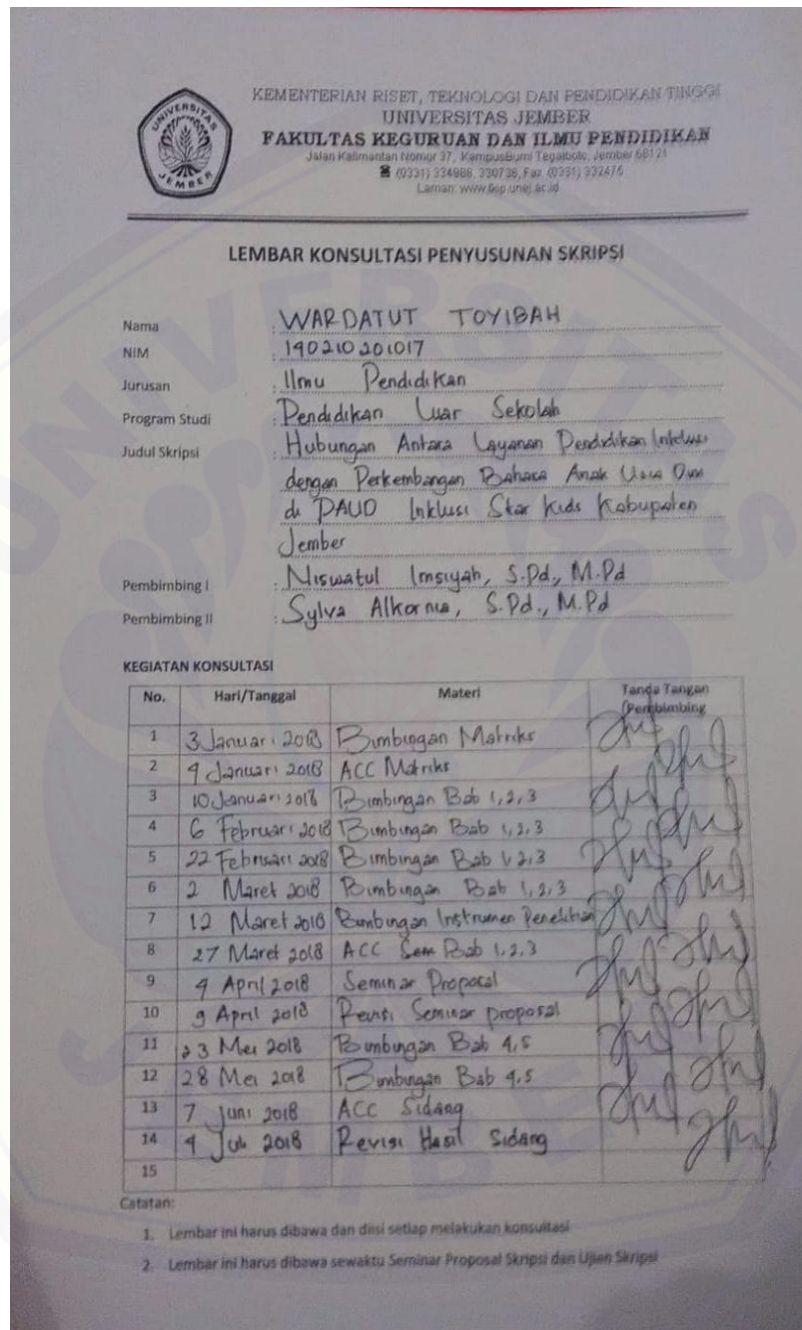 UNIVERSITAS JEMBER
KEMENTERIAN RISET, TEKNOLOGI DAN PENDIDIKAN TINGGI
UNIVERSITAS JEMBER
FAKULTAS KEGURUAN DAN ILMU PENDIDIKAN
Jalan Kalimantan Nomor 37, KampusBumi Tegalboto, Jember 68121
☎ (0331) 334988, 330738, Fax (0331) 332475
Laman: www.fkip.unej.ac.id
LEMBAR KONSULTASI PENYUSUNAN SKRIPSI
Nama : WARDATUT TOYIBAH
NIM : 140210201017
Jurusan : Ilmu Pendidikan
Program Studi : Pendidikan Luar Sekolah
Judul Skripsi : Hubungan Antara Layanan Pendidikan Inklusi
dengan Perkembangan Bahasa Anak Usia Dini
di PAUD Inklusi Star Kids Kabupaten
Jember
Pembimbing I : Niswatul Imsiyah, S.Pd., M.Pd
Pembimbing II : Sylva Alkornia, S.Pd., M.Pd
KEGIATAN KONSULTASI
No. Hari/Tanggal Materi Tanda Tangan
Pembimbing
1 3 Januari 2018 Bimbingan Matriks
2 9 Januari 2018 ACC Matriks
3 10 Januari 2018 Bimbingan Bab 1,2,3
4 6 Februari 2018 Bimbingan Bab 1,2,3
5 22 Februari 2018 Bimbingan Bab 1,2,3
6 2 Maret 2018 Bimbingan Bab 1,2,3
7 12 Maret 2018 Bimbingan Instrumen Penelitian
8 27 Maret 2018 ACC Bab 1,2,3
9 4 April 2018 Seminar Proposal
10 9 April 2018 Revisi Seminar proposal
11 23 Mei 2018 Bimbingan Bab 4,5
12 28 Mei 2018 Bimbingan Bab 4,5
13 7 Juni 2018 ACC Sidang
14 4 Juli 2018 Revisi Hasil Sidang
15
Catatan:
1. Lembar ini harus dibawa dan diisi setiap melakukan konsultasi
2. Lembar ini harus dibawa sewaktu Seminar Proposal Skripsi dan Ujian Skripsi